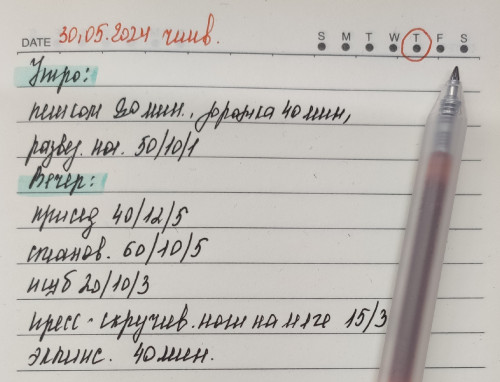 DATE 30.05.2024 чтв. S M T W T F S
Утро:
пешком 20 мин., дорожка 40 мин,
развед. ног. 50/10/1
Вечер:
присед 40/12/5
станов. 60/10/5
ищб 20/10/3
пресс-скручив. ноги на мяче 15/3
эллипс. 40 мин.